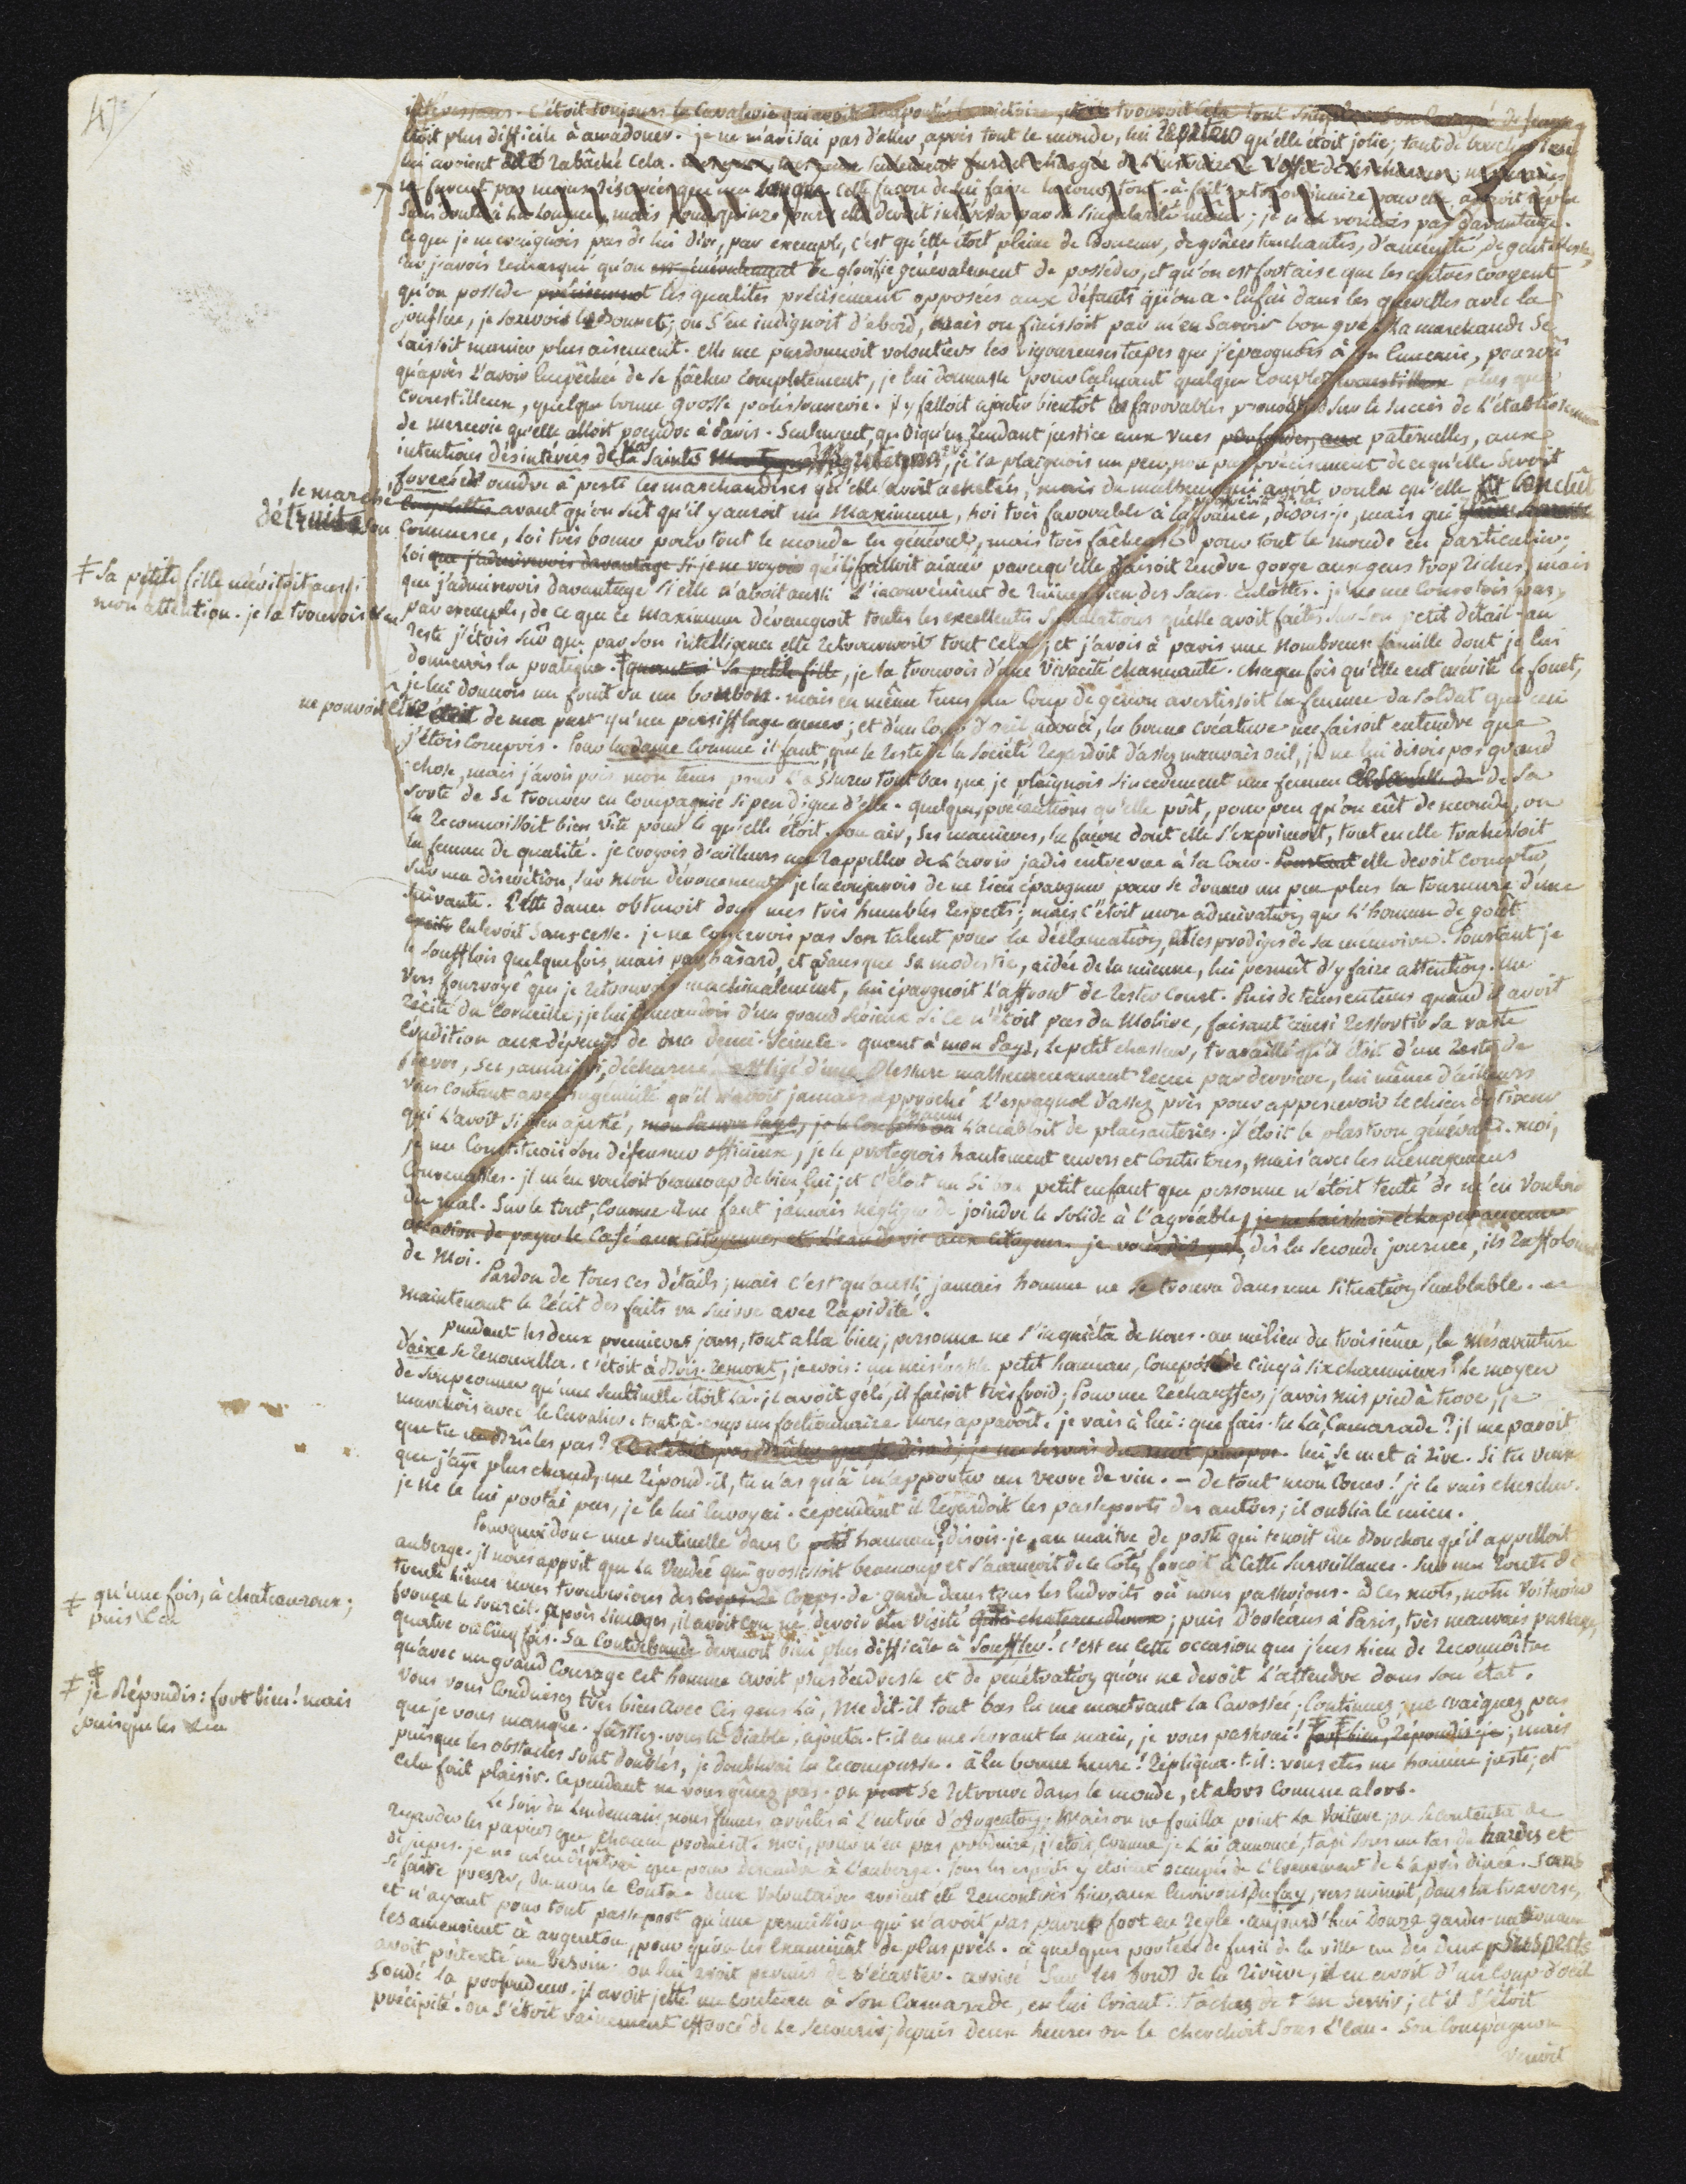 47
c'étoit toujours la Cavalerie qui avoit remporté la victoire,
étoit plus difficile à amadouer. je ne m'avisai pas d'aller, après tout le monde, lui répéter qu'elle étoit jolie; tant de bouches
lui avoient rabâché cela.
ne furent pas moins réservées que ma langue. cette façon de lui faire la cour, tout-à-fait extraordinaire pour elle, auroit déplu
sans doute à la longue; mais pour quinze jours elle devoit intéresser par sa singularité même; je n'en voulois pas davantage.
ce que je ne craignois pas de lui dire, par exemple, c'est qu'elle étoit pleine de douceur, de grâces touchantes, d'aménité, de gentillesse,
car j'avois remarqué qu'on est généralement se glorifie généralement de posséder, et qu'on est fort aise que les autres croyent
qu'on possede précisément les qualités précisément opposées aux défauts qu'on a. Enfin dans les querelles avec la
joufflue, je sauvois le bonnet; on s'en indignoit d'abord, mais on finissoit par m'en savoir bon gré. La marchande se
laissoit manier plus aisément. elle me pardonnoit volontiers les vigoureuses tapes que j'épargnois à son ennemie, pourvû
qu'après l'avoir empêchée de se fâcher complètement, je lui donnasse pour calmant quelque couplet croustilleux plus que
croustilleux, quelque bonne grosse polissonnerie. il y falloit ajouter bientôt les favorables pronostics sur le succès de l'établissement
de mercerie qu'elle alloit prendre à Paris. Seulement, quoiqu'en rendant justice aux vues paternelles, aux
intentions désintéressées de la Sainte Montagne, je la plaignois un peu, non pas précisément de ce qu'elle seroit
forcée de vendre à perte les marchandises qu'elle avoit achetées, mais du malheur qui avoit voulu qu'elle fit conclût
le marché
Emplettes avant qu'on sût qu'il y auroit un Maximum, loi très favorable à la France, disois-je, mais qui
détruira son
Commerce, loi très bonne pour tout le monde en général, mais très fâcheuse pour tout le monde en particulier;
loi que j'admirerois davantage si je ne voyois qu'il falloit aimer parce qu'elle faisoit rendre gorge aux gens trop riches, mais
que j'admirerois davantage si elle n'avoit aussi l'inconvénient de ruiner bien des Sans-culottes. je ne me consolois pas,
par exemple, de ce que ce maximum dérangeoit toutes les excellentes spéculations qu'elle avoit faites sur son petit détail. au
reste j'étois sûr que par son intelligence elle retrouveroit tout cela; et j'avois à Paris une nombreuse famille dont je lui
donnerois la pratique. ‡ quant à sa petite fille, je la trouvois d'une vivacité charmante. chaque fois qu'elle eut mérité le fouet,
‡ Sa petite fille méritoit aussi
mon attention. je la trouvois d'une
je lui donnois un fruit ou un bonbon. mais en même tems un coup de genou avertissoit la femme du soldat que ceci
ne pouvoit être
n'étoit de ma part qu'un persifflage amer; et d'un coup d'œil adouci, la bonne créature me faisoit entendre que
j'étois compris. Pour la dame comme il faut, que le reste de la société regardoit d'assez mauvais œil, je ne lui disois pas grand
chose, mais j'avois pris mon tems pour l'assurer tout bas que je plaignois sincèrement une femme de sa
sorte de se trouver en compagnie si peu digne d'elle. quelques précautions qu'elle prît, pour peu qu'on eût de monde, on
la reconnoissoit bien vîte pour ce qu'elle étoit. son air, ses manières, la façon dont elle s'exprimoit, tout en elle trahissoit
la femme de qualité. je croyois d'ailleurs me rappeller de l'avoir jadis entrevue à la Cour. Pourtant elle devoit compter
sur ma discrétion, sur mon dévouement; je la conjurois de ne rien épargner pour se donner un peu plus la tournure d'une
suivante. Cette dame obtenoit donc mes très humbles respects; mais c'étoit mon admiration que l'homme de goût
enlevoit sans cesse. je ne concevois pas son talent pour la déclamation, et les prodiges de sa mémoire. Pourtant je
le soufflois quelquefois, mais par hasard, et sans que sa modestie, aidée de la mienne, lui permît d'y faire attention. un
vers fourvoyé que je retrouvois machinalement, lui épargnoit l'affront de rester court. Puis de tems en tems quand il avoit
récité du Corneille, je lui demandois d'un grand sérieux si ce n'étoit pas du Molière, faisant ainsi ressortir sa vaste
érudition aux dépends de ma demi-science. quant à mon Pays, le petit chasseur, travaillé qu'il étoit d'un reste de
fievre, sec, amaigri, décharné, affligé d'une blessure malheureusement reçue par derrière, lui même d'ailleurs
vous contant avec ingénuité qu'il n'avoit jamais approché l'espagnol d'assez près pour appercevoir le chien de tireur
qui l'avoit si bien ajusté, mon Pauvre Pays, chacun l'accabloit de plaisanteries. il étoit le plastron général. moi,
je me constituois son défenseur officieux, je le protégeois hautement envers et contre tous, mais avec les ménagemens
convenables. il m'en vouloit beaucoup de bien, lui; et c'étoit un si bon petit enfant que personne n'étoit tenté de m'en vouloir
du mal. Sur le tout, comme il ne faut jamais négliger de joindre le solide à l'agréable, je ne laissois échapper aucune
occasion de payer le Café aux Citoyennes et l'eau de vie aux Citoyens. je vous dis que, dès la seconde journée, ils raffoloient
de moi.
Pardon de tous ces détails; mais c'est qu'aussi jamais homme ne se trouva dans une situation semblable. et
maintenant le récit des faits va suivre avec rapidité.
Pendant les deux premiers jours, tout alla bien; personne ne s'inquiéta de nous. au milieu du troisième, la mésaventure
d'aixe se renouvella. c'étoit à Bois-remont, je crois: un misérable petit hameau, composé de cinq à six chaumières! le moyen
de soupçonner qu'une sentinelle étoit là. il avoit gelé, il faisoit très froid; Pour me réchauffer, j'avois mis pied à terre, je
marchois avec le Cavalier. tout-à-coup un factionnaire nous apparoît. je vais à lui: que fais-tu là, Camarade? il me paroit
que tu ne brûles pas? Ce n'étoit pas brûler que je disois, je me servois du mot propre. lui se met à rire. Si tu veux
que j'aye plus chaud, me répond-il, tu n'as qu'à m'apporter un verre de vin. — de tout mon Cœur! je le vais chercher.
je ne le lui portai pas, je le lui envoyai. cependant il regardoit les passeports des autres; il oublia le mien.
Pourquoi donc une sentinelle dans ce petit hameau? disois-je au maître de poste qui tenoit un Bouchon qu'il appelloit
auberge. il nous apprit que la Vendée qui grossissoit beaucoup et s'avançoit de ce côté forçoit à cette surveillance. Sur une route de
trente lieues nous trouverions des Corps-de-garde dans tous les endroits où nous passerions. à ces mots, notre Voiturier
fronça le sourcil. Après Limoges, il avoit cru ne devoir être visité qu'à chateau-roux; puis d'orleans à Paris, très mauvais passage,
‡ qu'une fois, à chateauroux;
puis &a
quatre ou cinq fois. Sa Contrebande devenoit bien plus difficile à Souffler. c'est en cette occasion que j'eus lieu de reconnoître
qu'avec un grand Courage cet homme avoit plus d'adresse et de pénétration qu'on ne devoit l'attendre dans son état.
Vous vous conduisez très bien avec ces gens là, me dit-il tout bas en me montrant la Carossée; Continuez, ne craignez pas
que je vous manque. fussiez-vous le Diable, ajouta-t-il en me serrant la main, je vous passerai! ‡‡ fort bien, répondis-je; mais
‡‡ je Répondis: fort bien! mais
puisque les &a
puisque les obstacles sont doublés, je doublerai la récompense. à la bonne heure! répliqua-t-il: vous êtes un homme juste; et
cela fait plaisir. cependant ne vous gênez pas. on peut se retrouve dans le monde, et alors comme alors.
Le soir du lendemain, nous fûmes arrêtés à l'entrée d'Argenton; Mais on ne fouilla point la voiture; on se contenta de
regarder les papiers que chacun produisit. moi, pour n'en pas produire, j'étois, comme je l'ai annoncé, tapi sous un tas de hardes et
de jupes. je ne m'en dépêtrai que pour descendre à l'auberge. Tous les esprits y étoient occupés de l'évenement de l'après dinée. sans
se faire presser, on nous le conta. deux volontaires avoient été rencontrés hier, aux Environs du fay, vers minuit, dans la traverse,
et n'ayant pour tout passeport qu'une permission qui n'avoit pas parue fort en regle. aujourd'hui douze gardes-nationaux
les amenoient à argenton, pour qu'on les examinât de plus près. à quelques portées de fusil de la ville un des deux suspects
avoit prétexté un besoin. on lui avoit permis de s'écarter. arrivé sur les bords de la riviere, il en avoit d'un coup d'œil
sondé la profondeur. il avoit jetté un couteau à son Camarade, en lui criant: Tâchez de t'en servir; et il s'étoit
précipité. on s'étoit vainement efforcé de le secourir; depuis deux heures on le cherchoit sous l'eau. Son Compagnon
venoit